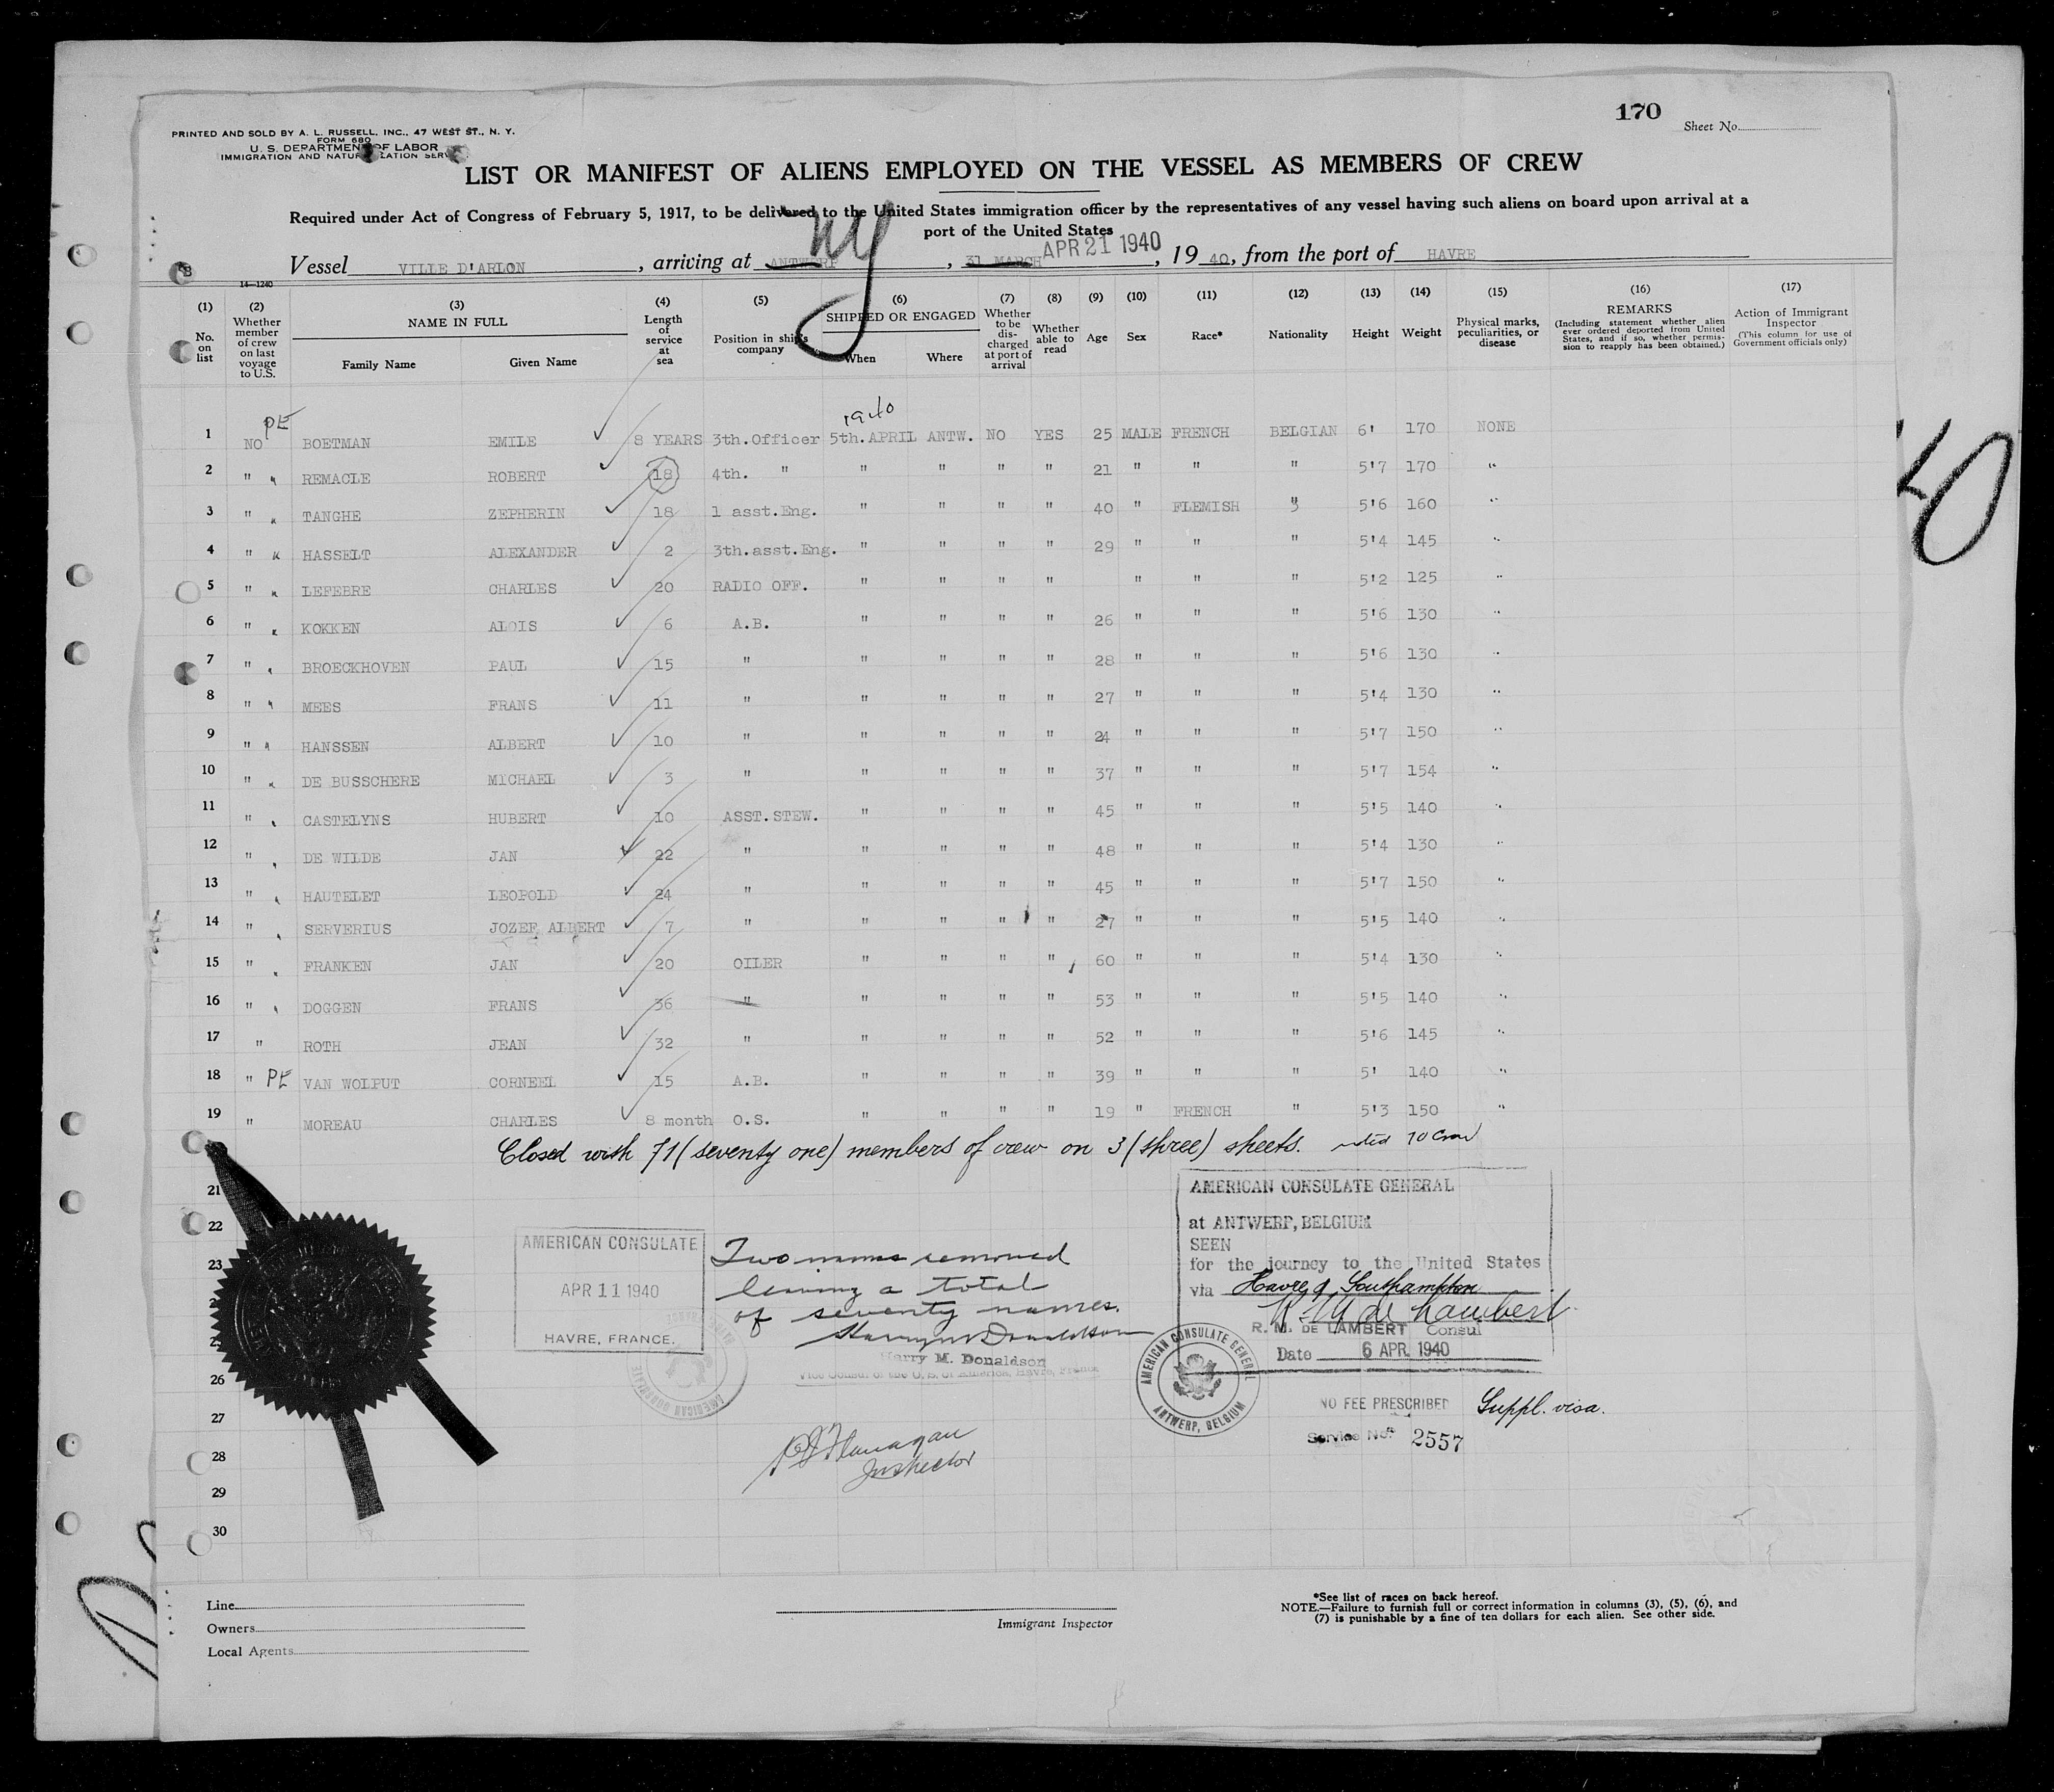 170
Sheet No.
PRINTED AND SOLD BY A. L. RUSSELL, INC., 47 WEST ST., N. Y.
FORM 680
U. S. DEPARTMENT OF LABOR
IMMIGRATION AND NATURALIZATION SERV
LIST OR MANIFEST OF ALIENS EMPLOYED ON THE VESSEL AS MEMBERS OF CREW
Required under Act of Congress of February 5, 1917, to be delivered to the United States immigration officer by the representatives of any vessel having such aliens on board upon arrival at a
port of the United States
Vessel VILLE D'ARLON, arriving at ANTWERP NY, 31 MARCH APR 21 1940, 19 40, from the port of HAVRE
14-1240
(1) (2) (3) (4) (5) (6) (7) (8) (9) (10) (11) (12) (13) (14) (15) (16) (17)
No. on list
Whether member of crew on last voyage to U.S.
NAME IN FULL
Family Name Given Name
Length of service at sea
Position in ship's company
SHIPPED OR ENGAGED
When Where
Whether to be discharged at port of arrival
Whether able to read
Age Sex Race* Nationality Height Weight
Physical marks, peculiarities, or disease
REMARKS
(Including statement whether alien ever ordered deported from United States, and if so, whether permission to reapply has been obtained.)
Action of Immigrant Inspector
(This column for use of Government officials only)
1940
1 NO PE BOETMAN EMILE 8 YEARS 3th.Officer 5th.APRIL ANTW. NO YES 25 MALE FRENCH BELGIAN 6' 170 NONE
2 " " REMACLE ROBERT 18 4th. " " " " " 21 " " " 5'7 170 "
3 " " TANGHE ZEPHERIN 18 1 asst.Eng. " " " " 40 " FLEMISH " 5'6 160 "
4 " " HASSELT ALEXANDER 2 3th.asst.Eng. " " " " 29 " " " 5'4 145 "
5 " " LEFEBRE CHARLES 20 RADIO OFF. " " " " " " " 5'2 125 "
6 " " KOKKEN ALOIS 6 A.B. " " " " 26 " " " 5'6 130 "
7 " " BROECKHOVEN PAUL 15 " " " " " 28 " " " 5'6 130 "
8 " " MEES FRANS 11 " " " " " 27 " " " 5'4 130 "
9 " " HANSSEN ALBERT 10 " " " " " 24 " " " 5'7 150 "
10 " " DE BUSSCHERE MICHAEL 3 " " " " " 37 " " " 5'7 154 "
11 " " CASTELYNS HUBERT 10 ASST.STEW. " " " " 45 " " " 5'5 140 "
12 " " DE WILDE JAN 22 " " " " " 48 " " " 5'4 130 "
13 " " HAUTELET LEOPOLD 24 " " " " " 45 " " " 5'7 150 "
14 " " SERVERIUS JOZEF ALBERT 7 " " " " " 27 " " " 5'5 140 "
15 " " FRANKEN JAN 20 OILER " " " " 60 " " " 5'4 130 "
16 " " DOGGEN FRANS 36 " " " " " 53 " " " 5'5 140 "
17 " ROTH JEAN 32 " " " " " 52 " " " 5'6 145 "
18 " PE VAN WOLPUT CORNEEL 15 A.B. " " " " 39 " " " 5' 140 "
19 " MOREAU CHARLES 8 month O.S. " " " " 19 " FRENCH " 5'3 150 "
Closed with 71 (seventy one) members of crew on 3 (three) sheets. 70 Crew
21
22
23
26
27
28
29
30
AMERICAN CONSULATE
APR 11 1940
HAVRE, FRANCE.
Two names removed
leaving a total
of seventy names.
Harry M Donaldson
Harry M. Donaldson
Vice Consul of the U. S. of America, Havre, France
AMERICAN CONSULATE GENERAL
at ANTWERP, BELGIUM
SEEN
for the journey to the United States
via Havre & Southampton
R M de Lambert
R. M. DE LAMBERT Consul
Date 6 APR. 1940
AMERICAN CONSULATE GENERAL
ANTWERP, BELGIUM
NO FEE PRESCRIBED Suppl. visa.
Service No. 2557
Flanagan
Inspector
Line
Owners
Local Agents
Immigrant Inspector
*See list of races on back hereof.
NOTE.—Failure to furnish full or correct information in columns (3), (5), (6), and
(7) is punishable by a fine of ten dollars for each alien. See other side.